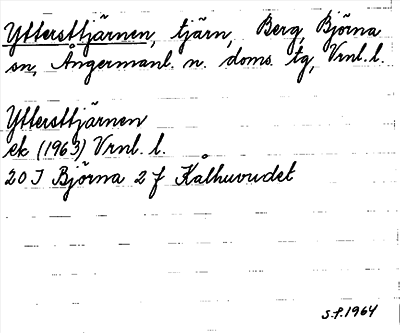 Yttersttjärnen, tjärn, Berg, Björna
sn, Ångermanl. n. doms. tg, Vrnl. l.
Yttersttjärnen
ek (1963) Vrnl. l.
20 I Björna 2 f Kålhuvudet
S.F. 1964